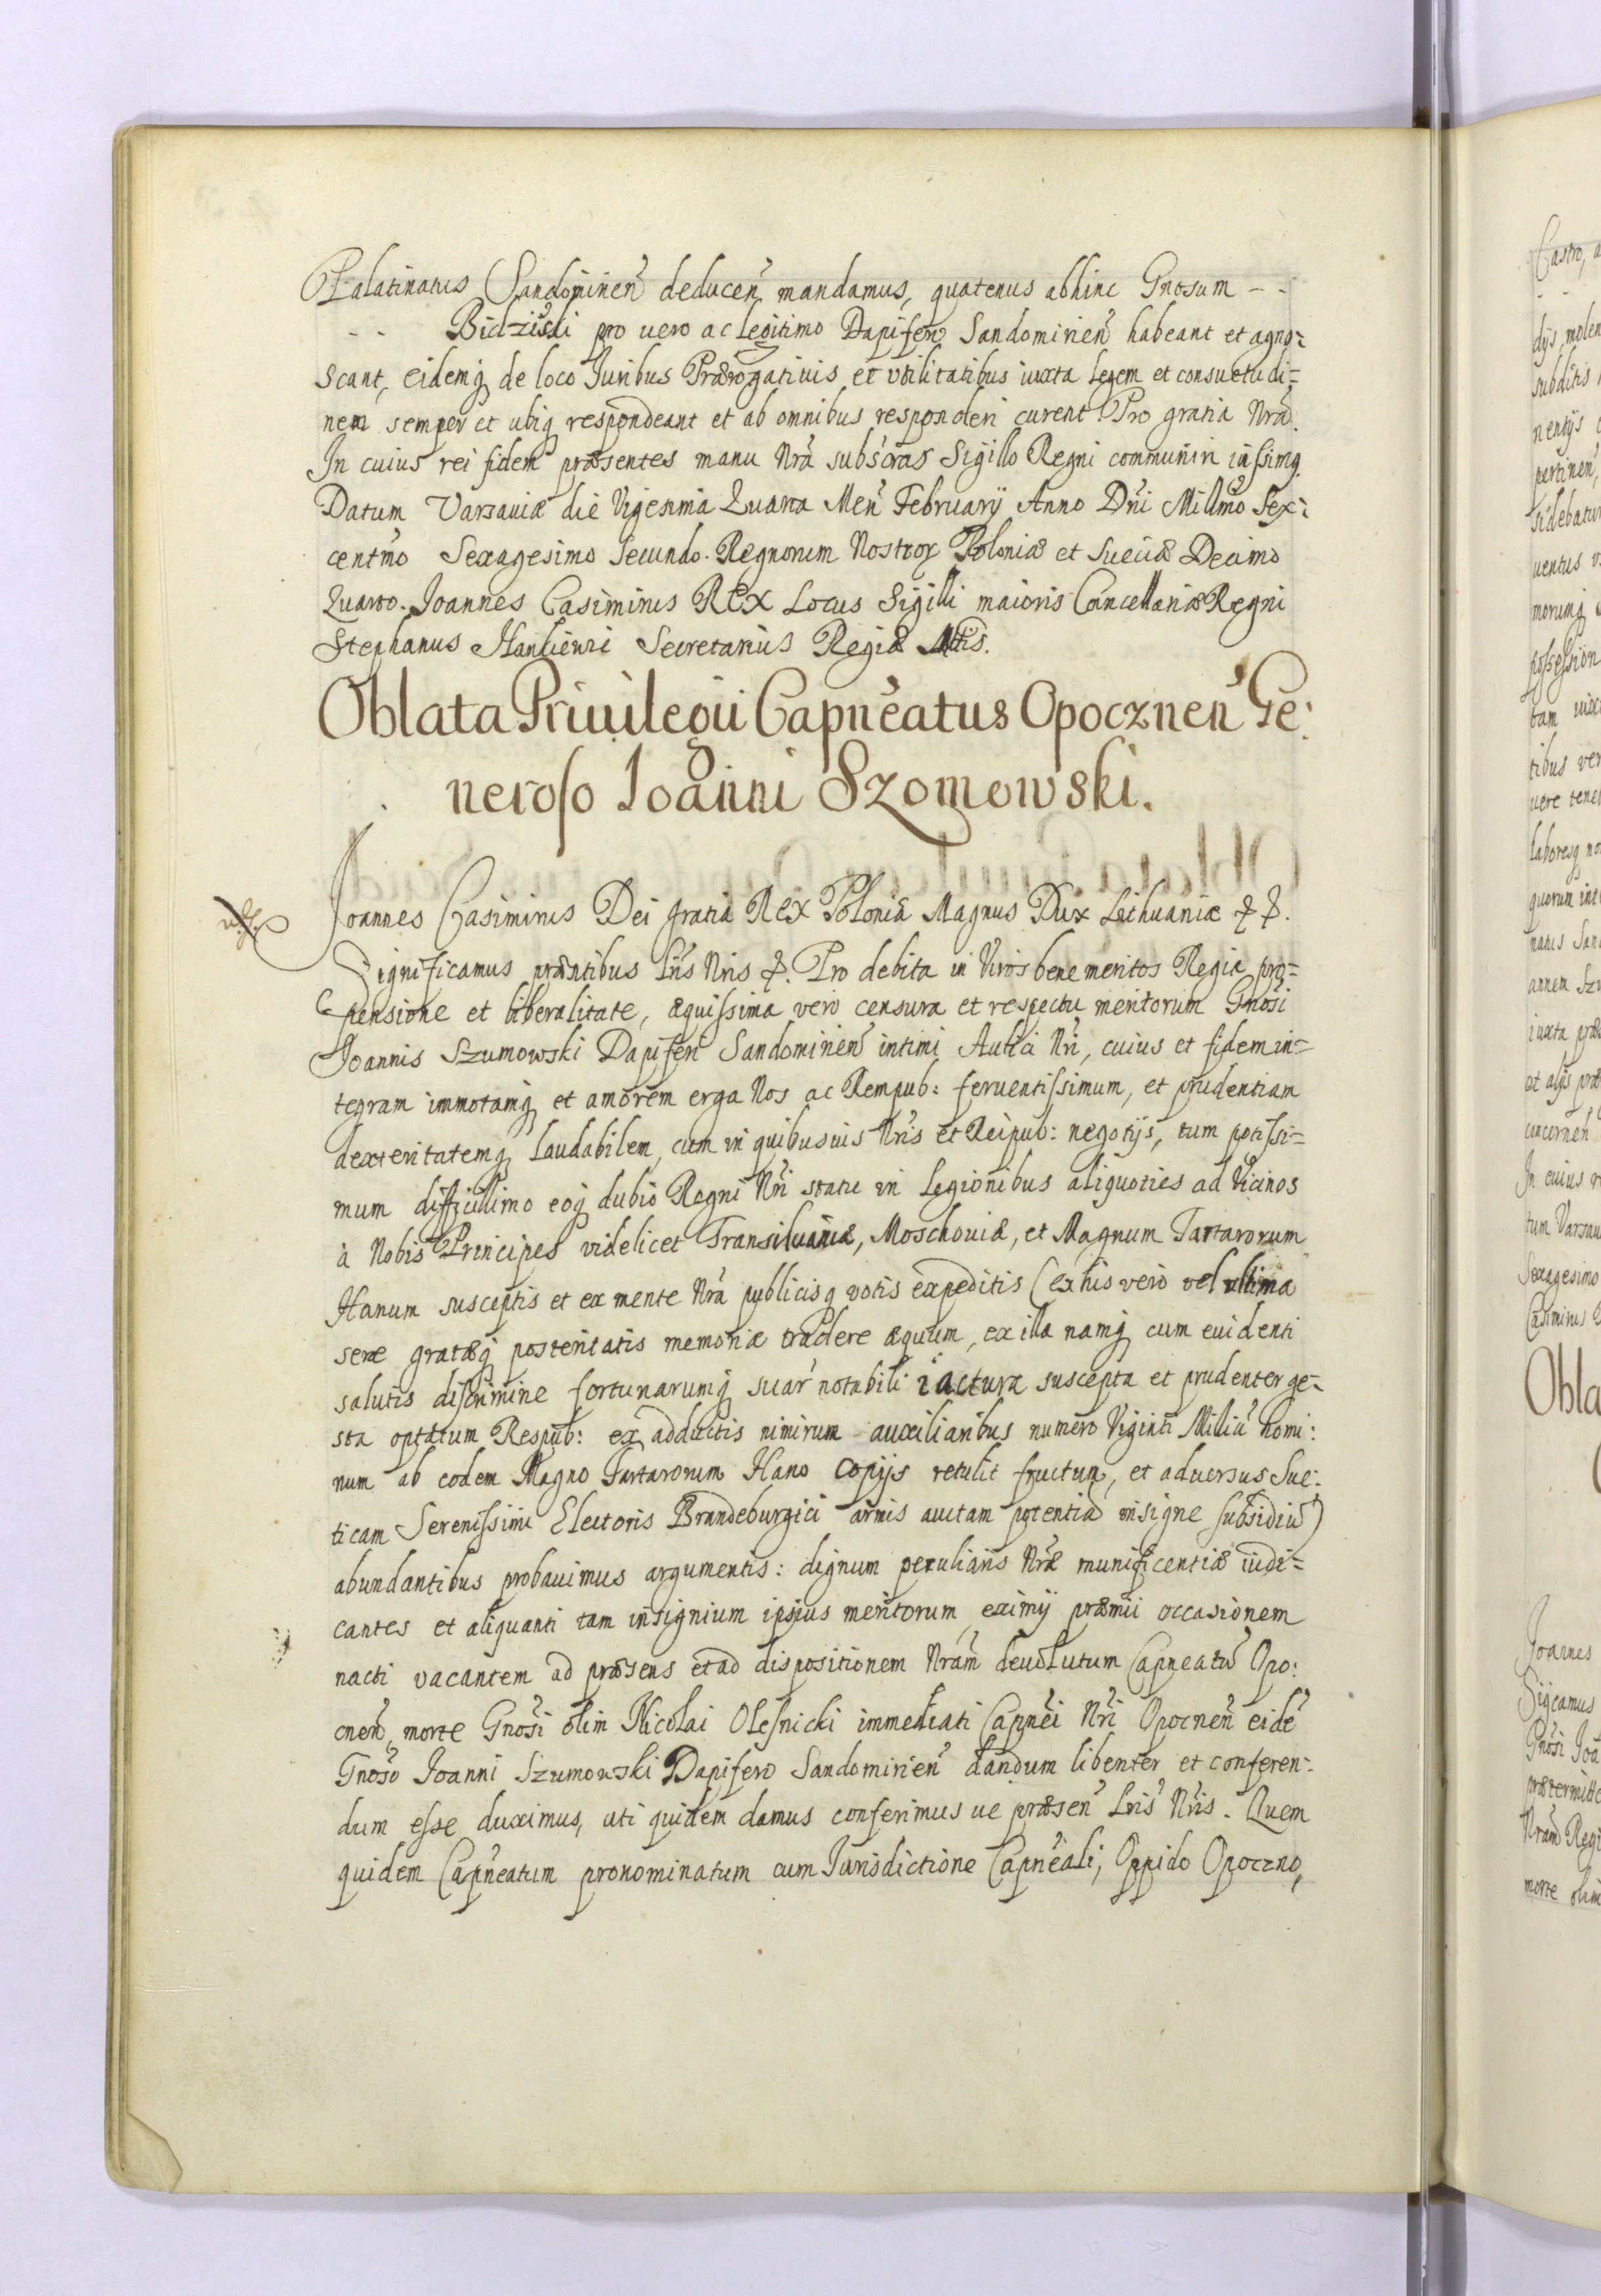 Palatinatus Sandomirień deduceń mandamus, quatenus abhinc Gnosum - -
- - Bidziński pro vero ac legitimo Dapifero Sandomirień habeant et agno=
scant, eidemq̨ de loco Juribus Prærogatiuis et vtilitatibus iuxta legem et consuetudi=
nem semper et ubiq̨ respondeant et ab omnibus responderi curent Pro gratia Nrã.
In cuius rei fidem præsentes manu Nrã subscras Sigillo Regni communiri iussimq̨
Datum Varsauiæ die Vigesima Quarta Meń February Anno Dñi Millmo Sex=
centmo Sexagesimo Secundo. Regnorum Nostror Poloniæ et Sueciæ Decimo
Quarto. Joannes Casimirus REX Locus Sigilli maioris Cancellariæ Regni
Stephanus Hankiewi Secretarius Regiæ Mtis.
Oblata Priuilegii Capneatus Opoczneń Ge:
neroso Ioanni Szomowski.
Joannes Casimirus Dei gratia Rex Poloniæ Magnus Dux Lithuaniæ & &.
Significamus præntibus Lris Nris &. Pro debita in Viros bene meritos Regia pro=
pensione et liberalitate, æquissima vero censura et respectu meritorum Gnosi
Joannis Szumowski Dapiferi Sandomirień intimi Aulici Nri, cuius et fidem in=
tegram immotamq̨ et amorem erga Nos ac Rempub: feruentissimum, et prudentiam
dexteritatemq̨ laudabilem, cum in quibusuis Nris et Reipub: negotijs, tum potissi=
mum difficilimo eoq̨ dubio Regni Nri statu in Legionibus aliquoties ad Vicinos
à Nobis Principes videlicet Transiluaniæ, Moschouiæ, et Magnum Tartarorum
Hanum susceptis et ex mente Nrã publicisq̨ votis expeditis (ex his vero vel ultima
seræ gratæq̨ posteritatis memoriæ tradere æquum, ex illa namq̨ cum euidenti
salutis discrimine fortunarumq̨ suar notabili iactura suscepta et prudenter ge=
sta optatum Respub: ex adductis nimirum auxiliaribus numero Viginti Milliũ homi:
num ab eodem Magno Tartarorum Hano copijs retulit fructum, et aduersus Sue:
ticam Serenissimi Electoris Brandeburgici armis auctam potentiã insigne subsidiũ)
abundantibus probauimus argumentis: dignum peculiaris Nræ munificentiæ iudi=
cantes et aliquanti tam insignium ipsius meritorum eximij præmii occasionem
nacti vacantem ad præsens et ad dispositionem Nram deuolutum Capneatũ Opo:
cneń, morte Gnosi olim Nicolai Olesnicki immediati Capnei Nri Opocneń eidẽ
Gnoso Joanni Szumowski Dapifero Sandomirień dandum libenter et conferen:
dum esse duximus, uti quidem damus conferimus ue præseń Lris Nris. Quem
quidem Capneatum pronominatum cum Jurisdictione Capneali, Oppido Opoczno,